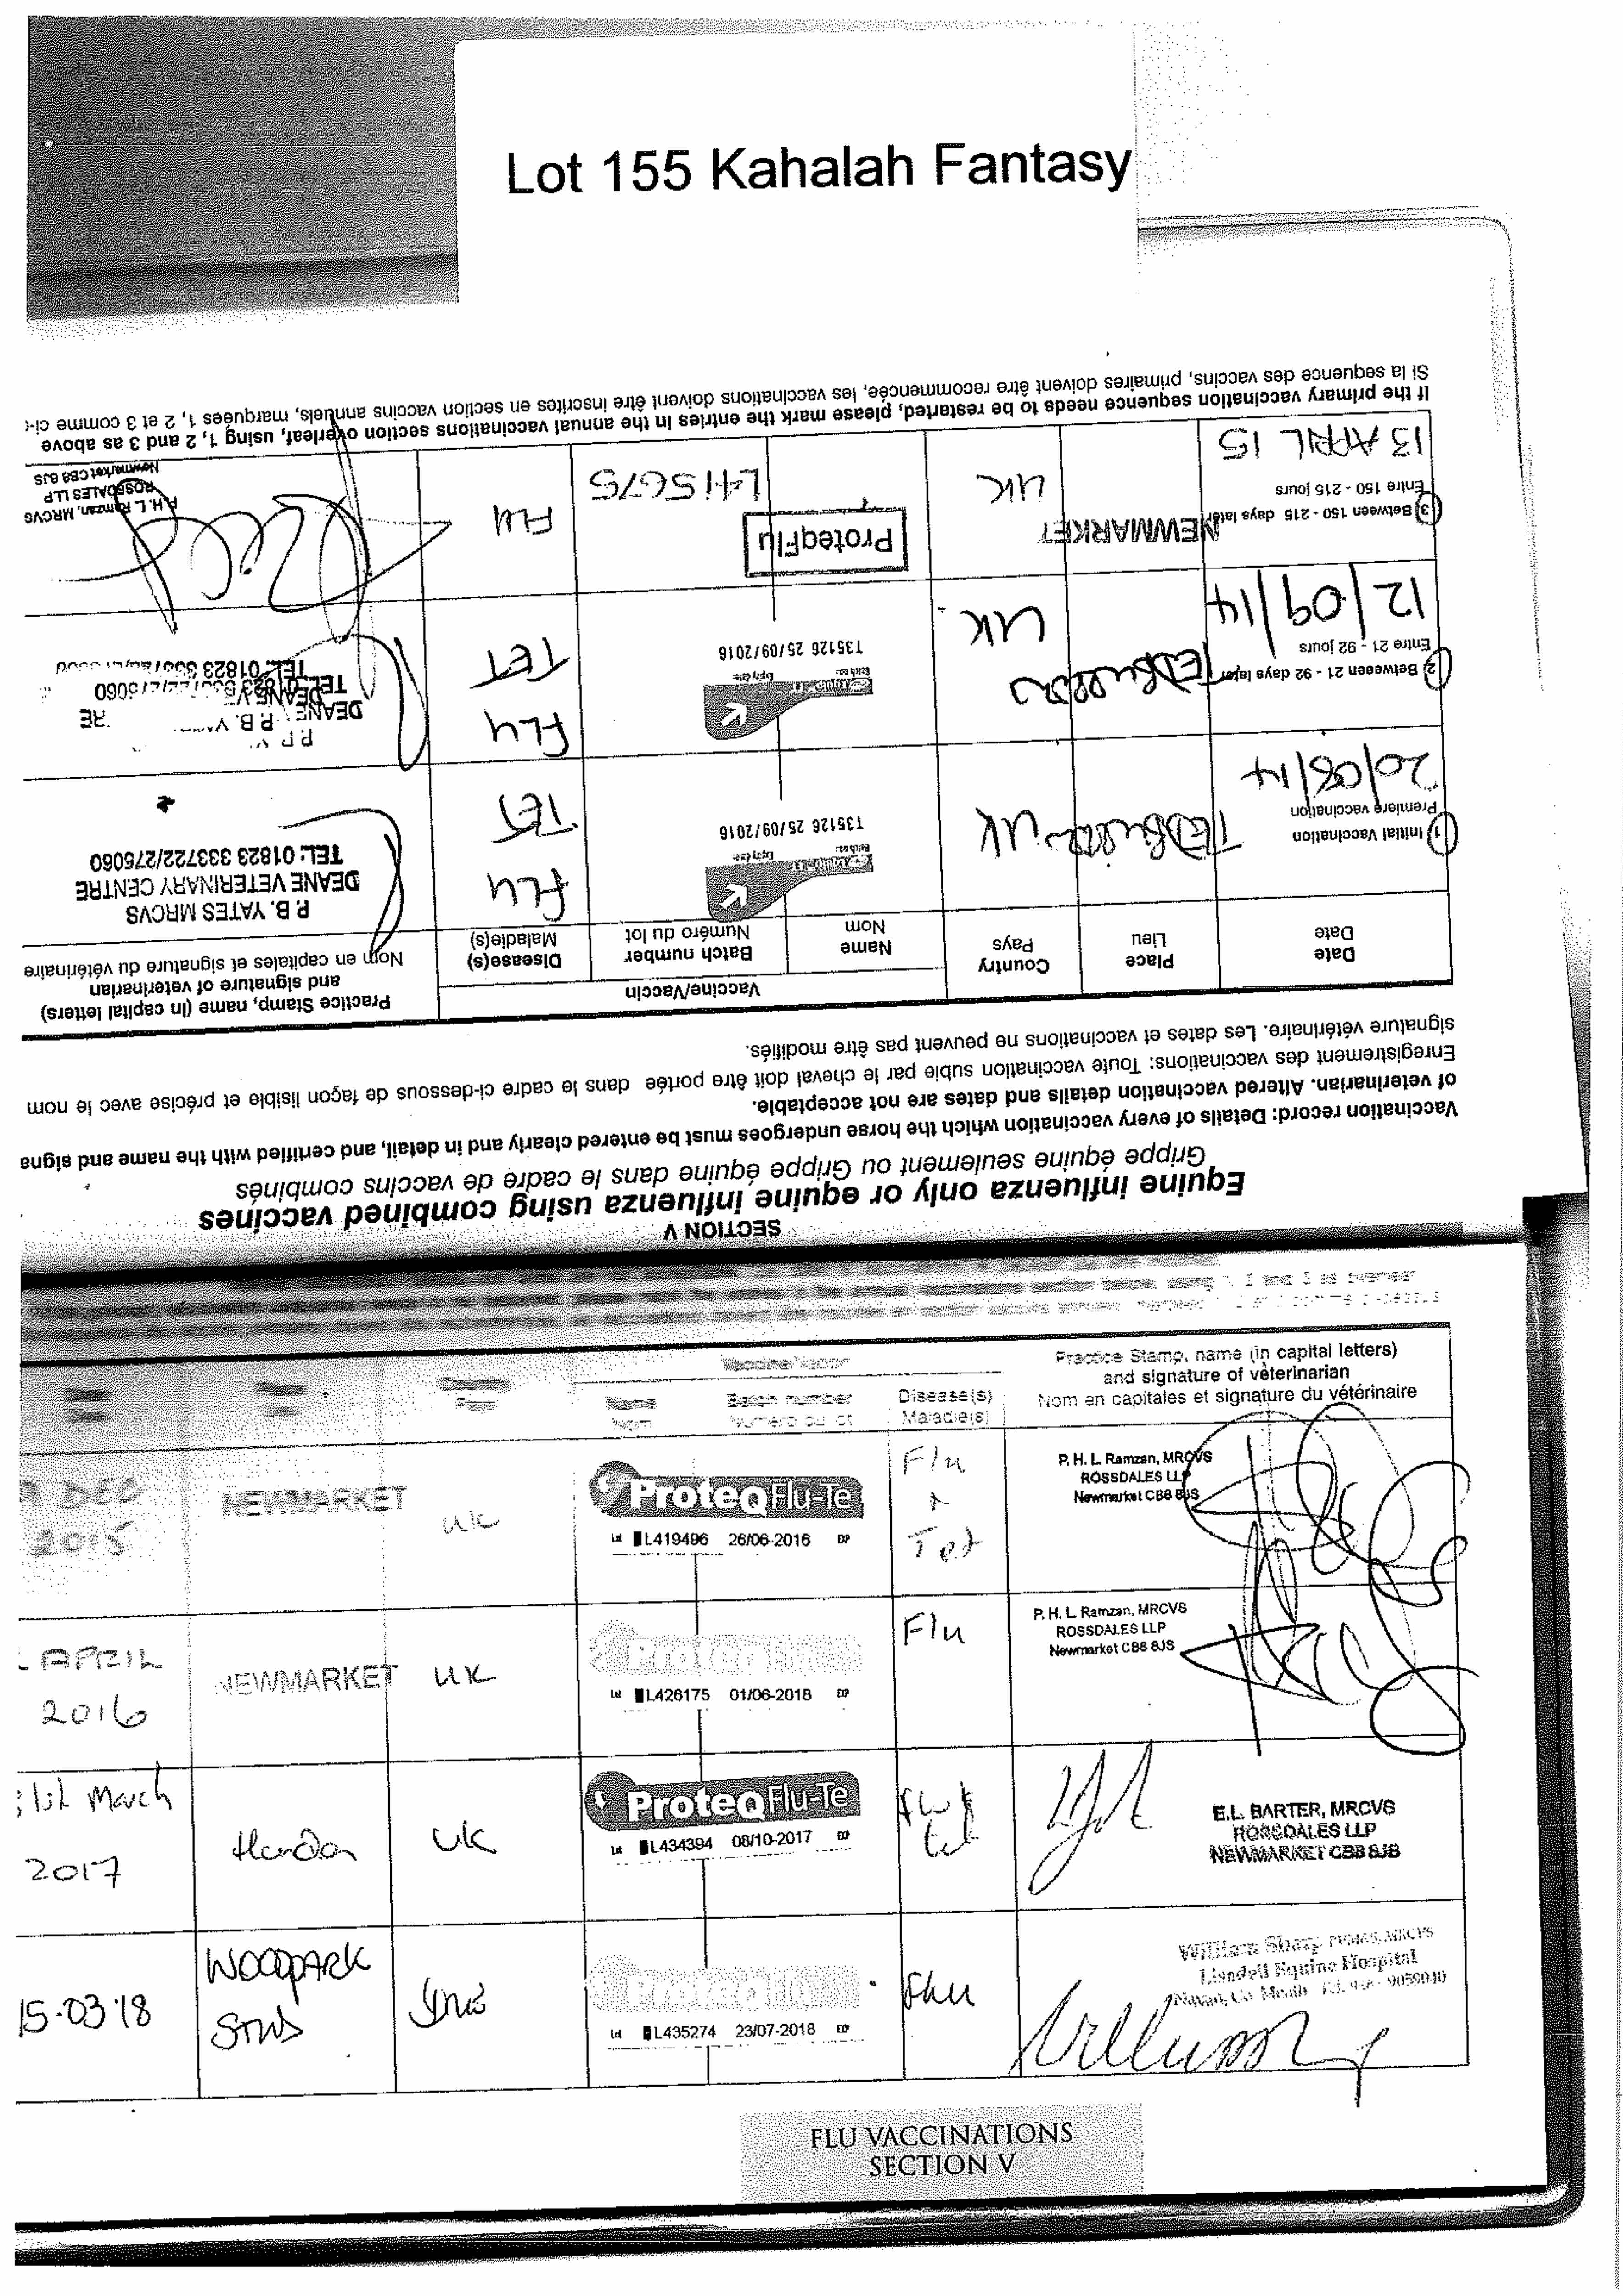 Lot 155 Kahalah Fantasy
SECTION V
Equine influenza only or equine influenza using combined vaccines
Grippe équine seulement ou Grippe équine dans le cadre de vaccins combinés
Vaccination record: Details of every vaccination which the horse undergoes must be entered clearly and in detail, and certified with the name and signa
of veterinarian. Altered vaccination details and dates are not acceptable.
Enregistrement des vaccinations: Toute vaccination subie par le cheval doit être portée dans le cadre ci-dessous de façon lisible et précise avec le nom
signature vétérinaire. Les dates et vaccinations ne peuvent pas être modifiés.
Date
Date
Place
Lieu
Country
Pays
Vaccine/Vaccin
Name
Nom
Batch number
Numéro du lot
Disease(s)
Maladie(s)
Practice Stamp, name (in capital letters)
and signature of veterinarian
Nom en capitales et signature du vétérinaire
1) Initial Vaccination
Première vaccination
20/08/14
UK
T35126 25/09/2016
FLU
TET
P.B. YATES MRCVS
DEANE VETERINARY CENTRE
TEL: 01823 333722/275060
2) Between 21 - 92 days later
Entre 21 - 92 jours
12/09/14
UK
T35126 25/09/2016
FLU
TET
3) Between 150 - 215 days later
Entre 150 - 215 jours
13 APRIL 15
NEWMARKET
UK
ProteqFlu
L415675
FLU
P.H.L. Ramzan, MRCVS
ROSSDALES LLP
Newmarket CB8 8JS
If the primary vaccination sequence needs to be restarted, please mark the entries in the annual vaccinations section overleaf, using 1, 2 and 3 as above
Si la sequence des vaccins, primaires doivent être recommencée, les vaccinations doivent être inscrites en section vaccins annuels, marquées 1, 2 et 3 comme ci-
Name
Nom
Batch number
Disease(s)
Maladie(s)
Practice Stamp, name (in capital letters)
and signature of veterinarian
Nom en capitales et signature du vétérinaire
DEC
2015
NEWMARKET
UK
ProteqFlu-Te
Lot L419496 26/06-2016 EXP
Flu
+
Tet
P. H. L. Ramzan, MRCVS
ROSSDALES LLP
Newmarket CB8 8JS
APRIL
2016
NEWMARKET
UK
ProteqFlu
Lot L426175 01/06-2018 EXP
Flu
P. H. L. Ramzan, MRCVS
ROSSDALES LLP
Newmarket CB8 8JS
March
2017
UK
ProteqFlu-Te
Lot L434394 08/10-2017 EXP
Flu &
tet
E.L. BARTER, MRCVS
ROSSDALES LLP
NEWMARKET CB8 8JS
15.03.18
WOODPARK
STUD
ProteqFlu
Lot L435274 23/07-2018 EXP
Flu
William Sharp MRCVS
Lisadell Equine Hospital
Navan, Co. Meath
FLU VACCINATIONS
SECTION V